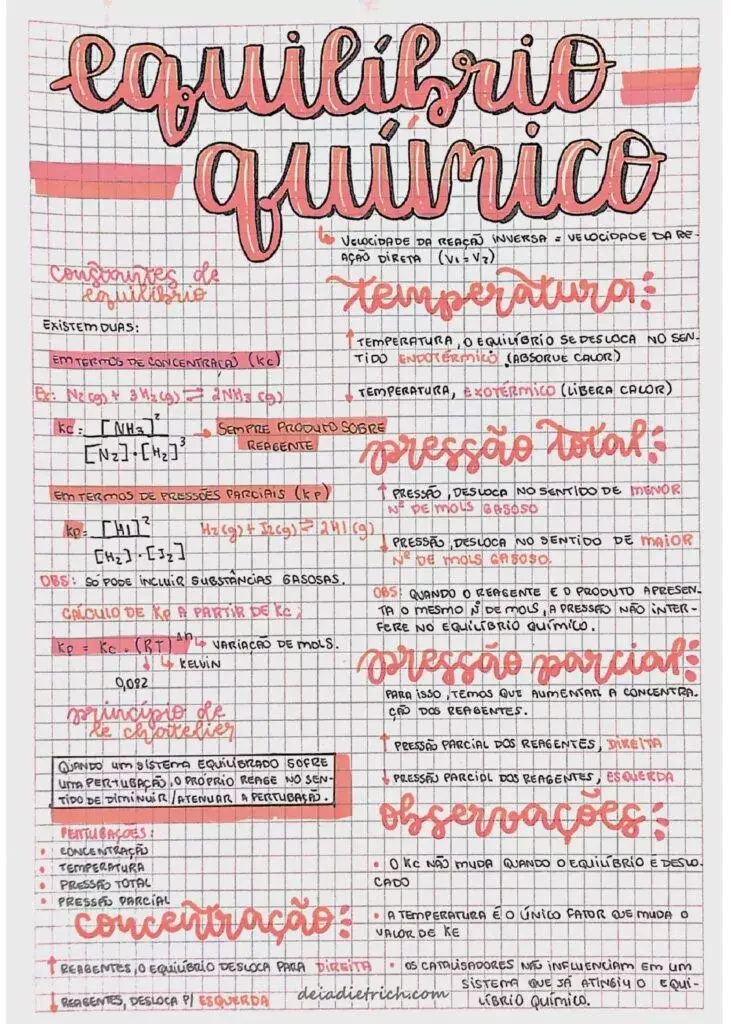 equilíbrio
químico
↳ VELOCIDADE DA REAÇÃO INVERSA = VELOCIDADE DA RE-
AÇÃO DIRETA (V1 = V2)
constantes de
equilíbrio
EXISTEM DUAS:
EM TERMOS DE CONCENTRAÇÃO (KC)
Ex: N2(g) + 3H2(g) ⇌ 2NH3(g)
KC = [NH3]² → SEMPRE PRODUTO SOBRE
[N2]·[H2]³ REAGENTE
EM TERMOS DE PRESSÕES PARCIAIS (KP)
KP = [HI]² H2(g) + I2(g) ⇌ 2HI(g)
[H2]·[I2]
OBS: SÓ PODE INCLUIR SUBSTÂNCIAS GASOSAS.
CÁLCULO DE KP A PARTIR DE KC:
KP = KC · (RT)^Δn ↳ VARIAÇÃO DE MOLS.
↓ ↳ KELVIN
0,082
princípio de
le chatelier
QUANDO UM SISTEMA EQUILIBRADO SOFRE
UMA PERTUBAÇÃO, O PRÓPRIO REAGE NO SEN-
TIDO DE DIMINUIR/ATENUAR A PERTUBAÇÃO.
PERTUBAÇÕES:
• CONCENTRAÇÃO
• TEMPERATURA
• PRESSÃO TOTAL
• PRESSÃO PARCIAL
concentração:
↑ REAGENTES, O EQUILÍBRIO DESLOCA PARA DIREITA
↓ REAGENTES, DESLOCA P/ ESQUERDA
temperatura:
↑ TEMPERATURA, O EQUILÍBRIO SE DESLOCA NO SEN-
TIDO ENDOTÉRMICO (ABSORVE CALOR)
↓ TEMPERATURA, EXOTÉRMICO (LIBERA CALOR)
pressão total:
↑ PRESSÃO, DESLOCA NO SENTIDO DE MENOR
Nº DE MOLS GASOSO
↓ PRESSÃO, DESLOCA NO SENTIDO DE MAIOR
Nº DE MOLS GASOSO.
OBS: QUANDO O REAGENTE E O PRODUTO APRESEN-
TA O MESMO Nº DE MOLS, A PRESSÃO NÃO INTER-
FERE NO EQUILÍBRIO QUÍMICO.
pressão parcial:
PARA ISSO, TEMOS QUE AUMENTAR A CONCENTRA-
ÇÃO DOS REAGENTES.
↑ PRESSÃO PARCIAL DOS REAGENTES, DIREITA
↓ PRESSÃO PARCIAL DOS REAGENTES, ESQUERDA
observações:
• O KC NÃO MUDA QUANDO O EQUILÍBRIO É DESLO-
CADO
• A TEMPERATURA É O ÚNICO FATOR QUE MUDA O
VALOR DE KC
• OS CATALISADORES NÃO INFLUENCIAM EM UM
SISTEMA QUE JÁ ATINGIU O EQUI-
LÍBRIO QUÍMICO.
deiadietrich.com